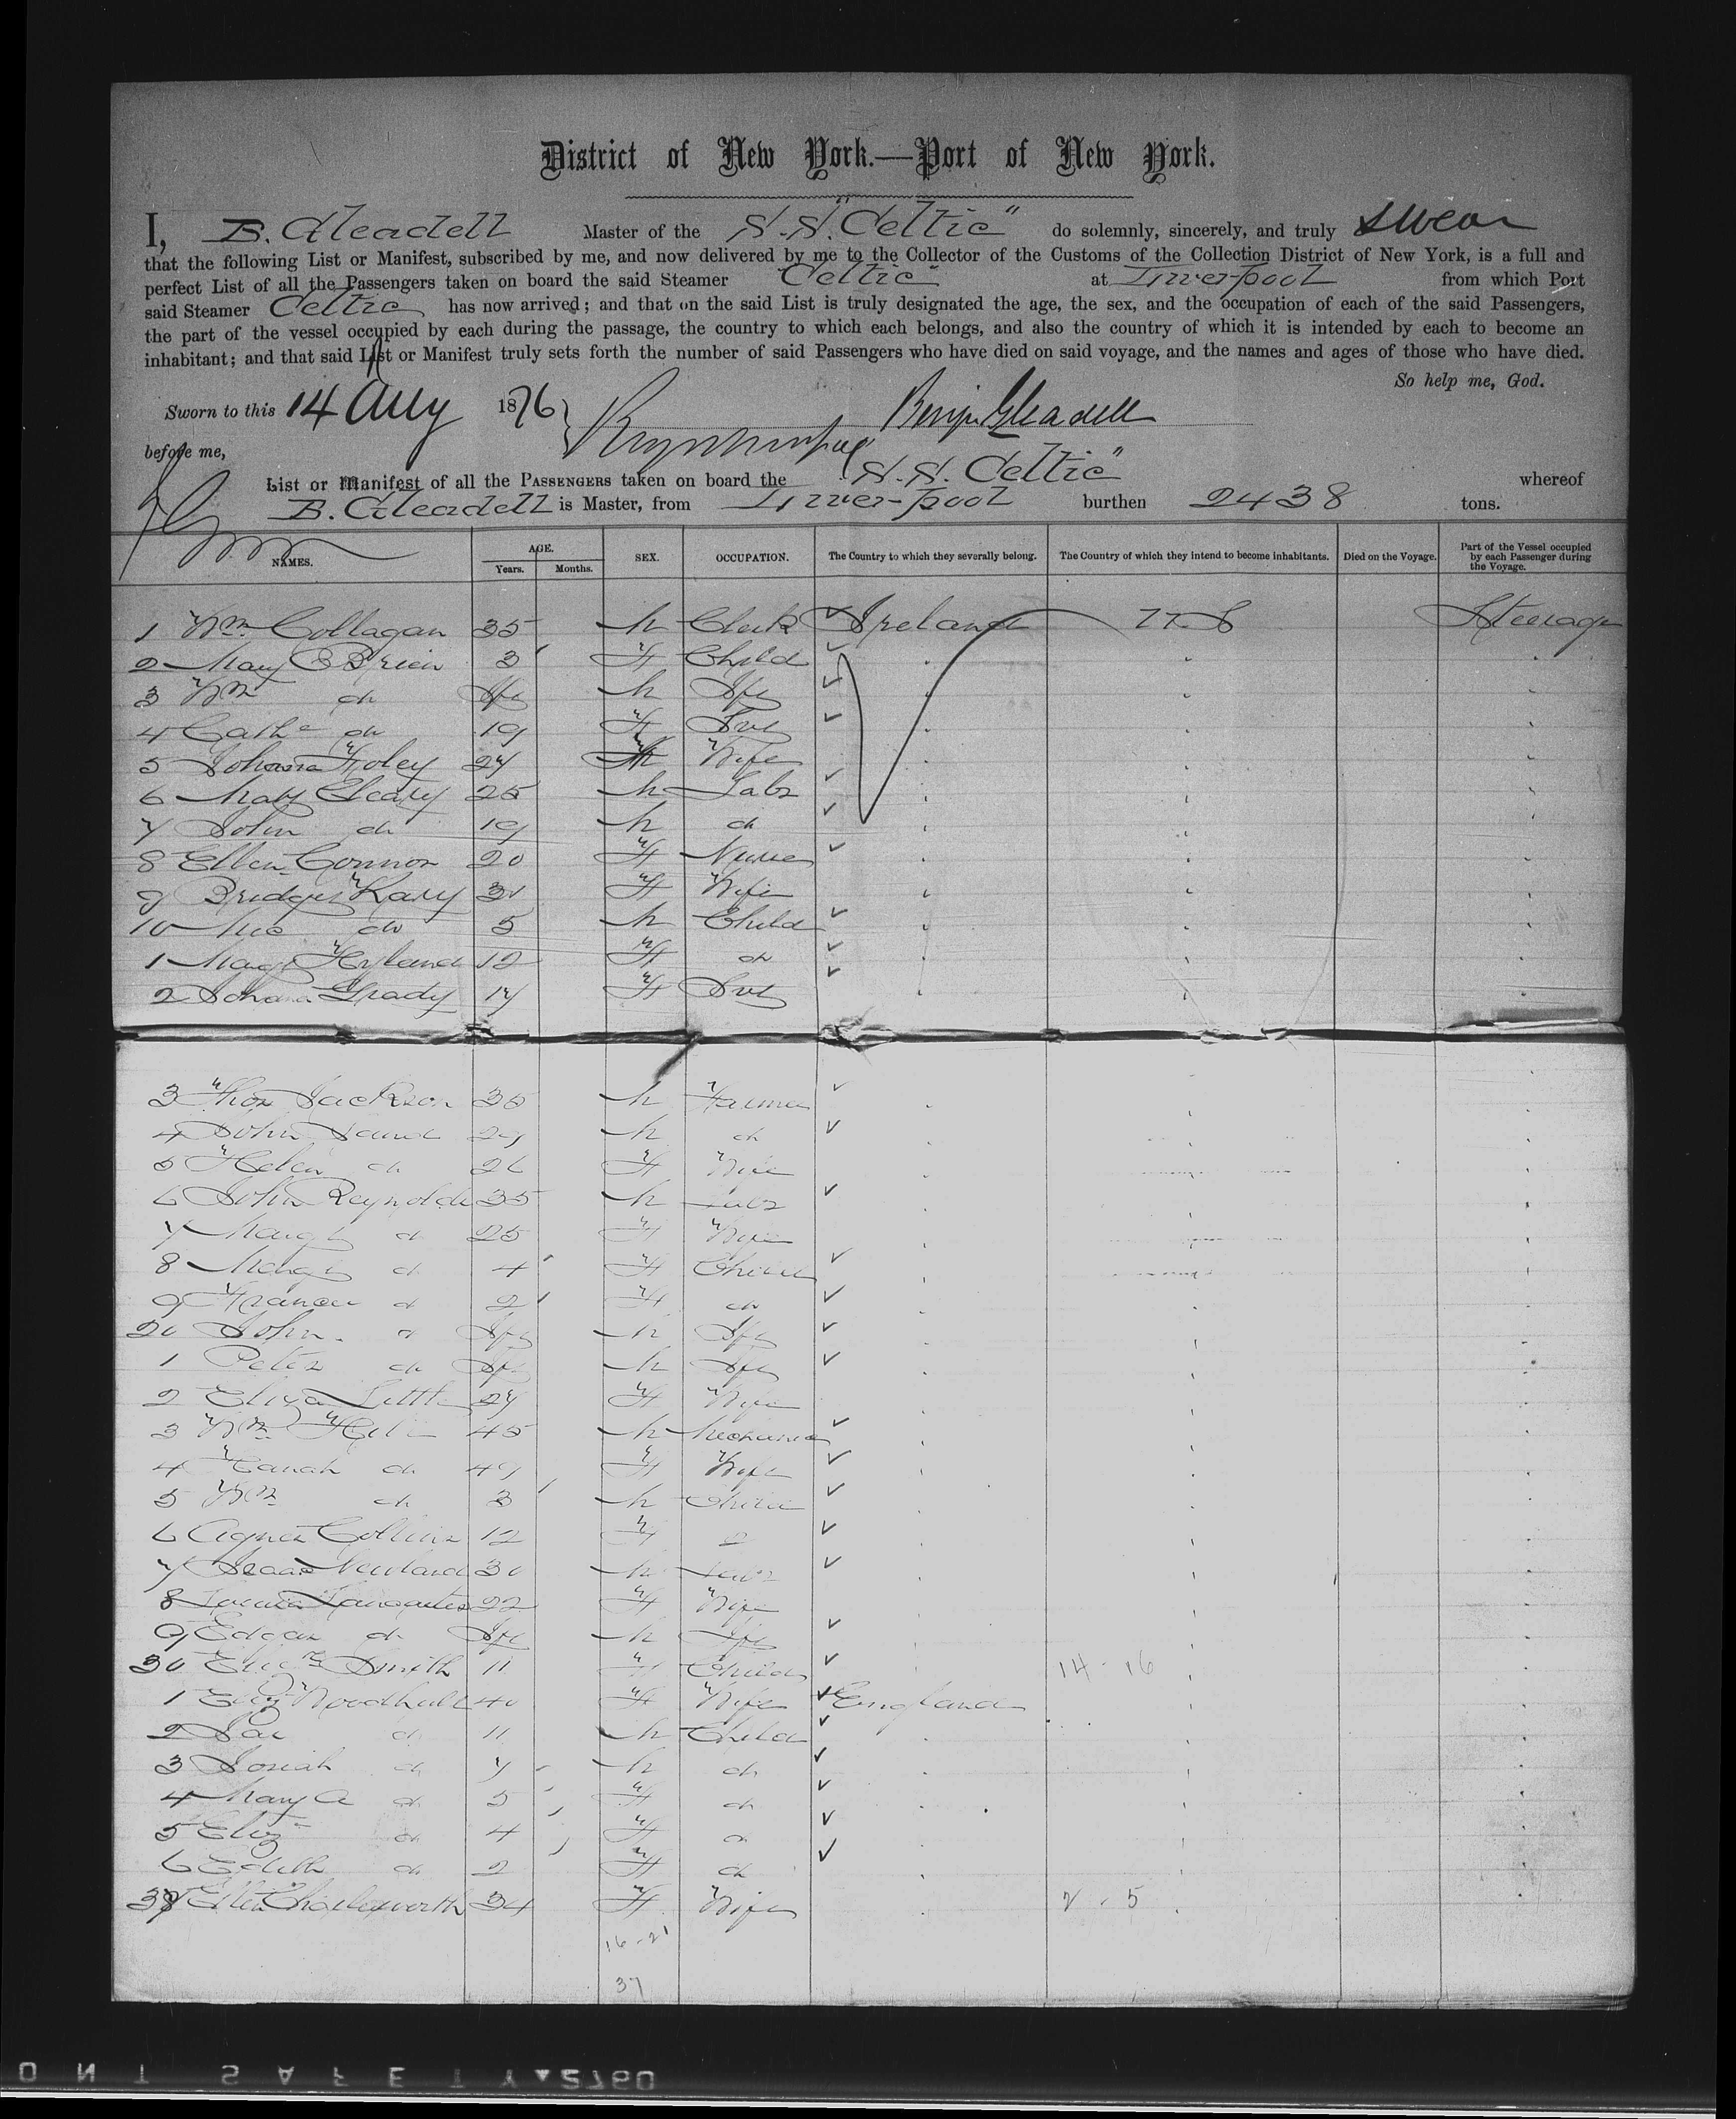 District of New York.—Port of New York.
I, B. Gleadell Master of the S.S. "Celtic" do solemnly, sincerely, and truly swear
that the following List or Manifest, subscribed by me, and now delivered by me to the Collector of the Customs of the Collection District of New York, is a full and
perfect List of all the Passengers taken on board the said Steamer "Celtic" at Liverpool from which Port
said Steamer Celtic has now arrived; and that on the said List is truly designated the age, the sex, and the occupation of each of the said Passengers,
the part of the vessel occupied by each during the passage, the country to which each belongs, and also the country of which it is intended by each to become an
inhabitant; and that said List or Manifest truly sets forth the number of said Passengers who have died on said voyage, and the names and ages of those who have died.
So help me, God.
Sworn to this 14 Aug 1876 Benj. Gleadell
before me,
List or Manifest of all the PASSENGERS taken on board the S.S. Celtic" whereof
B. Gleadell is Master, from Liverpool burthen 2438 tons.
NAMES. AGE. Years. Months. SEX. OCCUPATION. The Country to which they severally belong. The Country of which they intend to become inhabitants. Died on the Voyage. Part of the Vessel occupied by each Passenger during the Voyage.
1 Wm Collagan 35 M Clerk Ireland U S Steerage
2 Mary O Brien 3 F Child
3 Wm do Inf M Inf
4 Cathe do 19 F Svt
5 Johana Foley 24 Wife
6 Mary Cleary 25 M Labr
7 John do 19 M do
8 Ellen Connor 20 F Nurse
9 Bridget Kary 30 F Wife
10 do 5 M Child
1 Margt Hyland 12 F do
2 Johana Grady 17 F Svt
3 Thos Jackson 35 M Farmer
4 John 29 M do
5 Helen do 26 F Wife
6 John Reynolds 35 M Labr
7 Margt do 25 F Wife
8 Margt do 4 F Child
9 Frances do 2 F do
20 John do Inf M Inf
1 Peter do Inf M Inf
2 Eliza Little 24 F Wife
3 Wm 45 M Mechanic
4 Hanah do 49 F Wife
5 Wm do 3 M Child
6 Agnes Collins 12 F do
7 Isaac Newland 30 M Labr
8 22 F Wife
9 Edgar do Inf M Inf
30 Smith 11 F Child 14 - 16
1 Eliz Woodhull 40 F Wife England
2 do 11 M Child
3 Josiah do 7 M do
4 Mary A do 5 F do
5 Eliz do 4 F do
6 Edith do 2 F do
37 Ellen Charlesworth 34 F Wife 2 - 5
16 - 21
37
ONT SAFETY▲2760